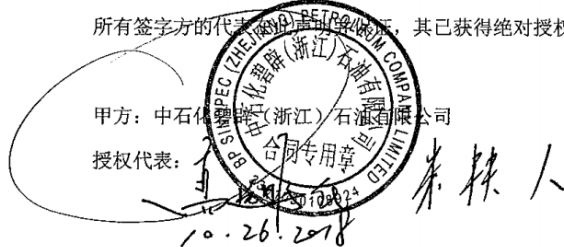 所有签字方的代表在此声明并保证，其已获得绝对授权
甲方：中石化碧辟（浙江）石油有限公司
授权代表：
BP SINOPEC (ZHEJIANG) PETROLEUM COMPANY LIMITED
中石化碧辟(浙江)石油有限公司
合同专用章
10.26.2018